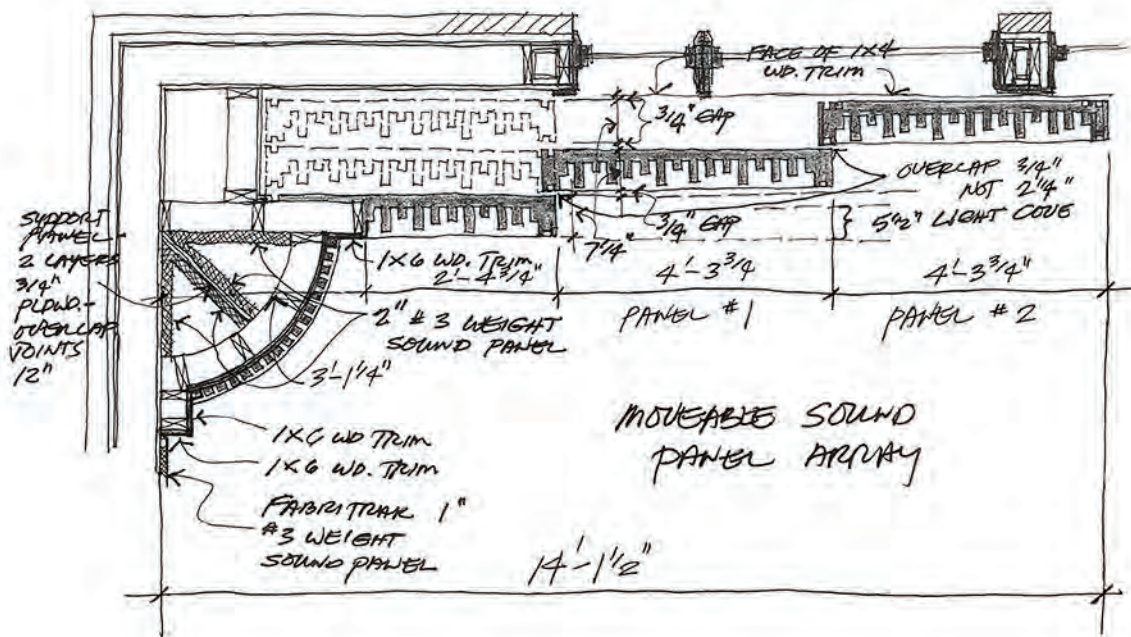 FACE OF 1X4
WD. TRIM
3/4" GAP
OVERLAP 3/4"
NOT 2 1/4"
5 1/2" LIGHT COVE
3/4" GAP
7 1/4"
SUPPORT
PANEL -
2 LAYERS
3/4"
PLDWD. -
OVERLAP
JOINTS
12"
1X6 WD. TRIM
2'-4 3/4"
4'-3 3/4
4'-3 3/4"
2" #3 WEIGHT
SOUND PANEL
PANEL #1
PANEL #2
3'-1 1/4"
1X6 WD TRIM
1X6 WD. TRIM
FABRITRAK 1"
#3 WEIGHT
SOUND PANEL
MOVEABLE SOUND
PANEL ARRAY
14'-1 1/2"